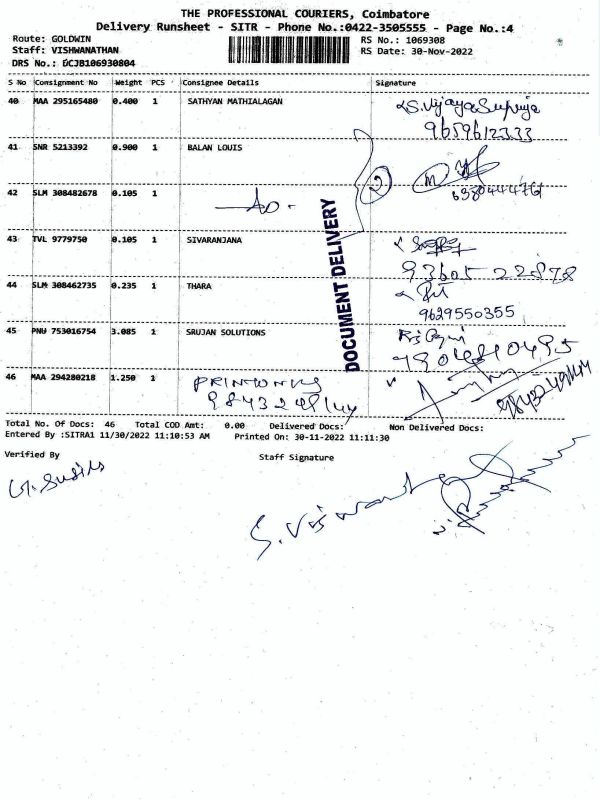 THE PROFESSIONAL COURIERS, Coimbatore
Delivery Runsheet - SITR - Phone No.:0422-3505555 - Page No.:4
Route: GOLDWIN RS No.: 1069308
Staff: VISHWANATHAN RS Date: 30-Nov-2022
DRS No.: DCJB106930804
S No Consignment No Weight PCS Consignee Details Signature
40 MAA 295165480 0.400 1 SATHYAN MATHIALAGAN S.Vijaya Supriya
9659612333
41 SNR 5213392 0.900 1 BALAN LOUIS
42 SLM 308482678 0.105 1
43 TVL 9779750 0.105 1 SIVARANJANA
93605 22878
44 SLM 308462735 0.235 1 THARA
9629550355
45 PNU 753016754 3.085 1 SRUJAN SOLUTIONS
46 MAA 294280218 1.250 1
DOCUMENT DELIVERY
Total No. Of Docs: 46 Total COD Amt: 0.00 Delivered Docs: Non Delivered Docs:
Entered By :SITRA1 11/30/2022 11:10:53 AM Printed On: 30-11-2022 11:11:30
Verified By Staff Signature
S. Viswanath